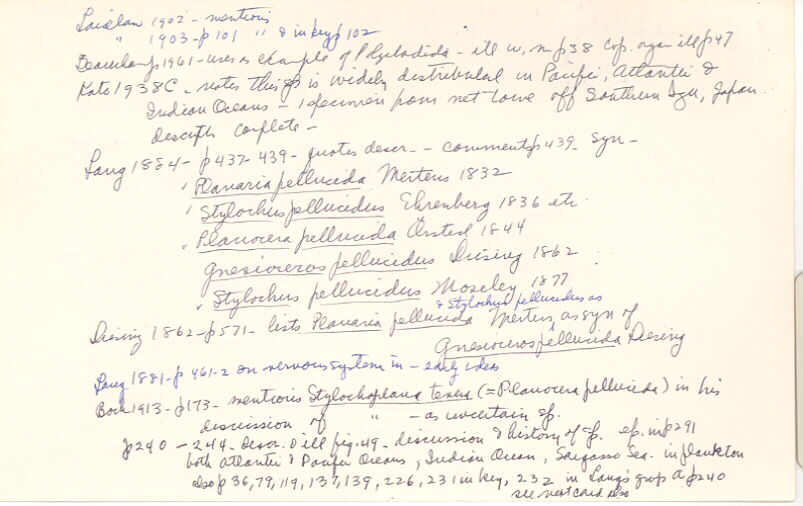 Laidlaw 1902 - mentions
" 1903 - p101 " & in key p102
Beauchamp 1961 - uses as example of Polycladida - ill w, m p38 cop. organ ill p47
Kato 1938C - notes this sp is widely distributed in Pacific, Atlantic &
Indian Oceans - 1 specimen from net tow off Southern Izu, Japan.
descrpt complete -
Lang 1884 - p437-439 - quotes descr. - comments p439. Syn -
Planaria pellucida Mertens 1832
Stylochus pellucidus Ehrenberg 1836 etc.
Planocera pellucida Örsted 1844
Gnesioceros pellucidus Diesing 1862
Stylochus pellucidus Moseley 1877
& Stylochus pellucidus as
Diesing 1862 - p571 - lists Planaria pellucida Mertens, as syn of
Gnesioceros pellucida Diesing
Lang 1881 - p 461-2 on nervous system in - early ideas
Bock 1913 - p173 - mentions Stylochoplana tenera (= Planocera pellucida) in his
discussion of " - as uncertain sp.
p240 - 244 - descr. & ill fig. 49 - discussion & history of sp. ep. in p291
both Atlantic & Pacific Oceans, Indian Ocean, Sargasso Sea - in plankton
also p 36, 79, 119, 137, 139, 226, 231 in key, 232 in Lang's group A p240
see next card also